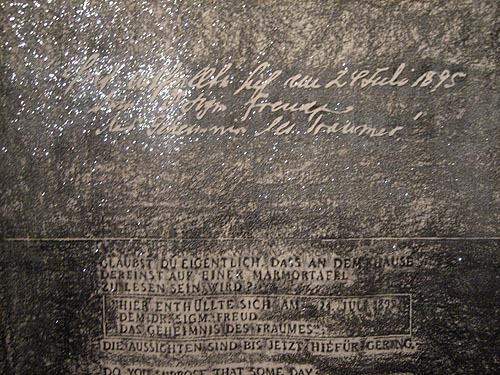 sich am 24 Juli 1895
Sigm. Freud
das Geheimnis des Traumes"
GLAUBST DU EIGENTLICH, DASS AN DEM HAUSE
DEREINST AUF EINER MARMORTAFEL
ZU LESEN SEIN WIRD?
"HIER ENTHÜLLTE SICH AM 24. JULI 1895
DEM DR. SIGM. FREUD
DAS GEHEIMNIS DES TRAUMES"
DIE AUSSICHTEN SIND BIS JETZT HIEFÜR GERING.
DO YOU SUPPOSE THAT SOME DAY